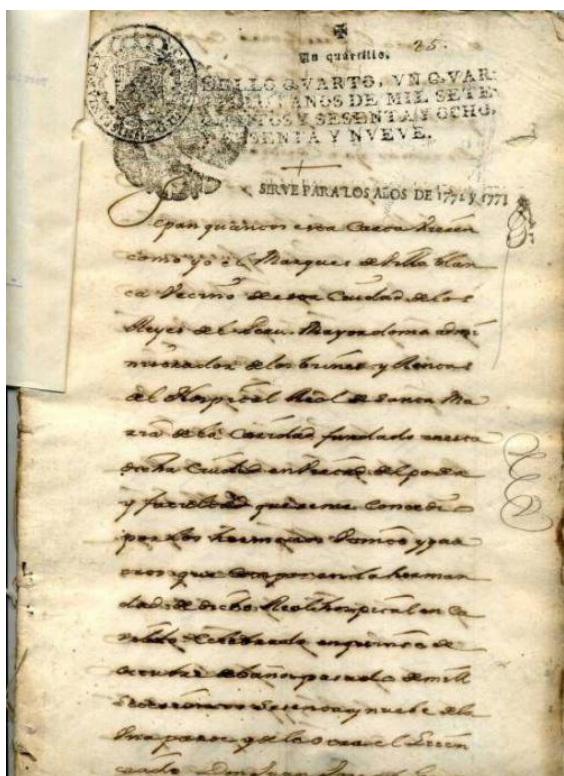 Un quartillo.
25.
SELLO QVARTO, VN QVAR-
AÑOS DE MIL SETE-
TOS Y SESENTA Y OCHO,
SESENTA Y NVEVE.
SIRVE PARA LOS AÑOS DE 1771 y 1771
Sepan quantos esta Carta Vieren
como yo el Marques de Villa blan
ca Vecino de esta Ciudad de los
Reyes del Peru Mayordomo admi
nistrador de los bienes y Rentas
del Hospital Real de Santa Ma
ria de la Caridad fundado en esta
dicha Ciudad en virtud del poder
y facultad que se me Concedio
por los hermanos
que componen la herman
dad de dicho Real hospital en Ca
bildo Celebrado en quince de
octubre del año pasado de mill
setecientos sesenta y nuebe de la
Una parte y de la otra el Licen
ciado Don Juan